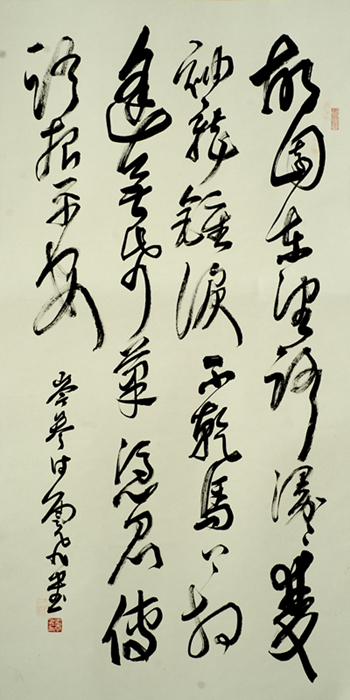 故園東望路漫漫雙
袖龍鍾淚不乾馬上相
逢無紙筆憑君傳
語報平安
岑參詩 書